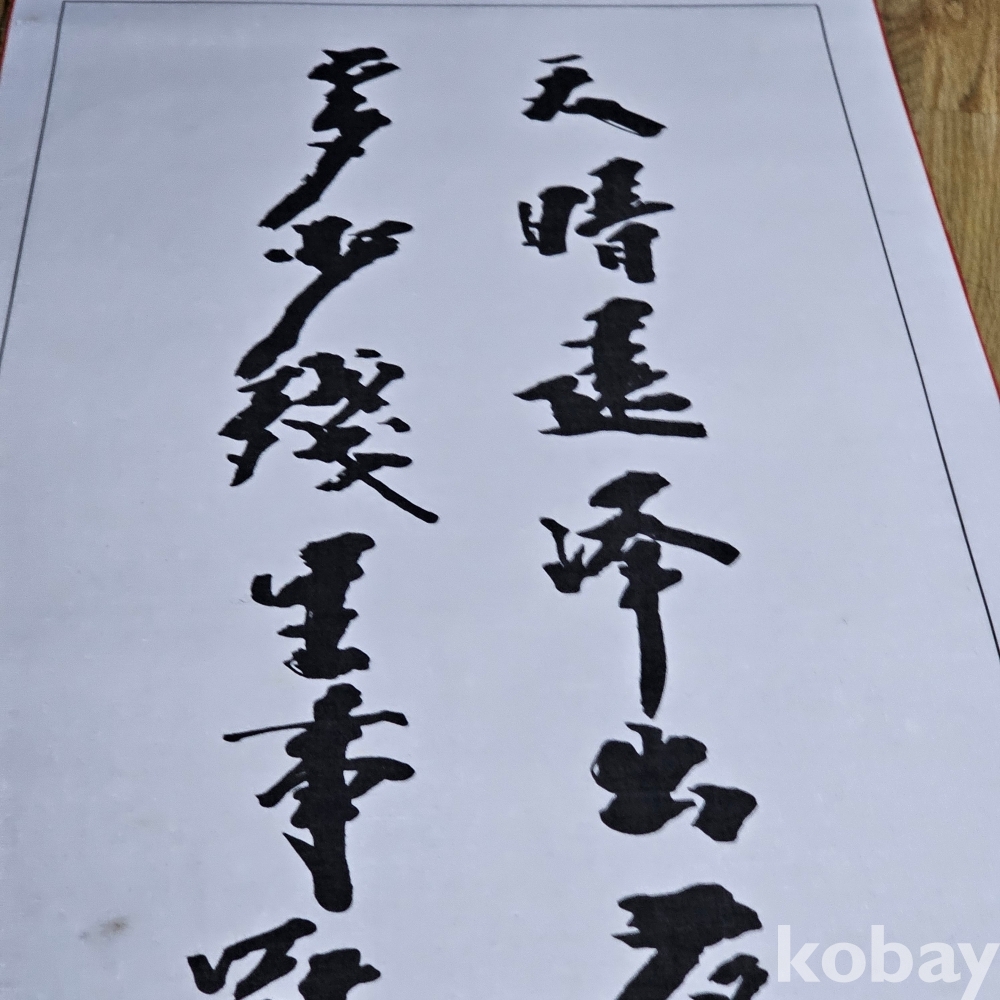 天晴遠峰出
多少殘生事
kobay